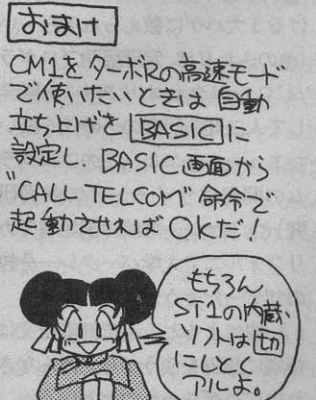 おまけ
CM1をターボRの高速モード
で使いたいときは自動
立ち上げを BASIC に
設定し BASIC画面から
"CALL TELCOM"命令で
起動させればOKだ!
もちろん
ST1の内蔵
ソフトは切
にしとく
アルよ。